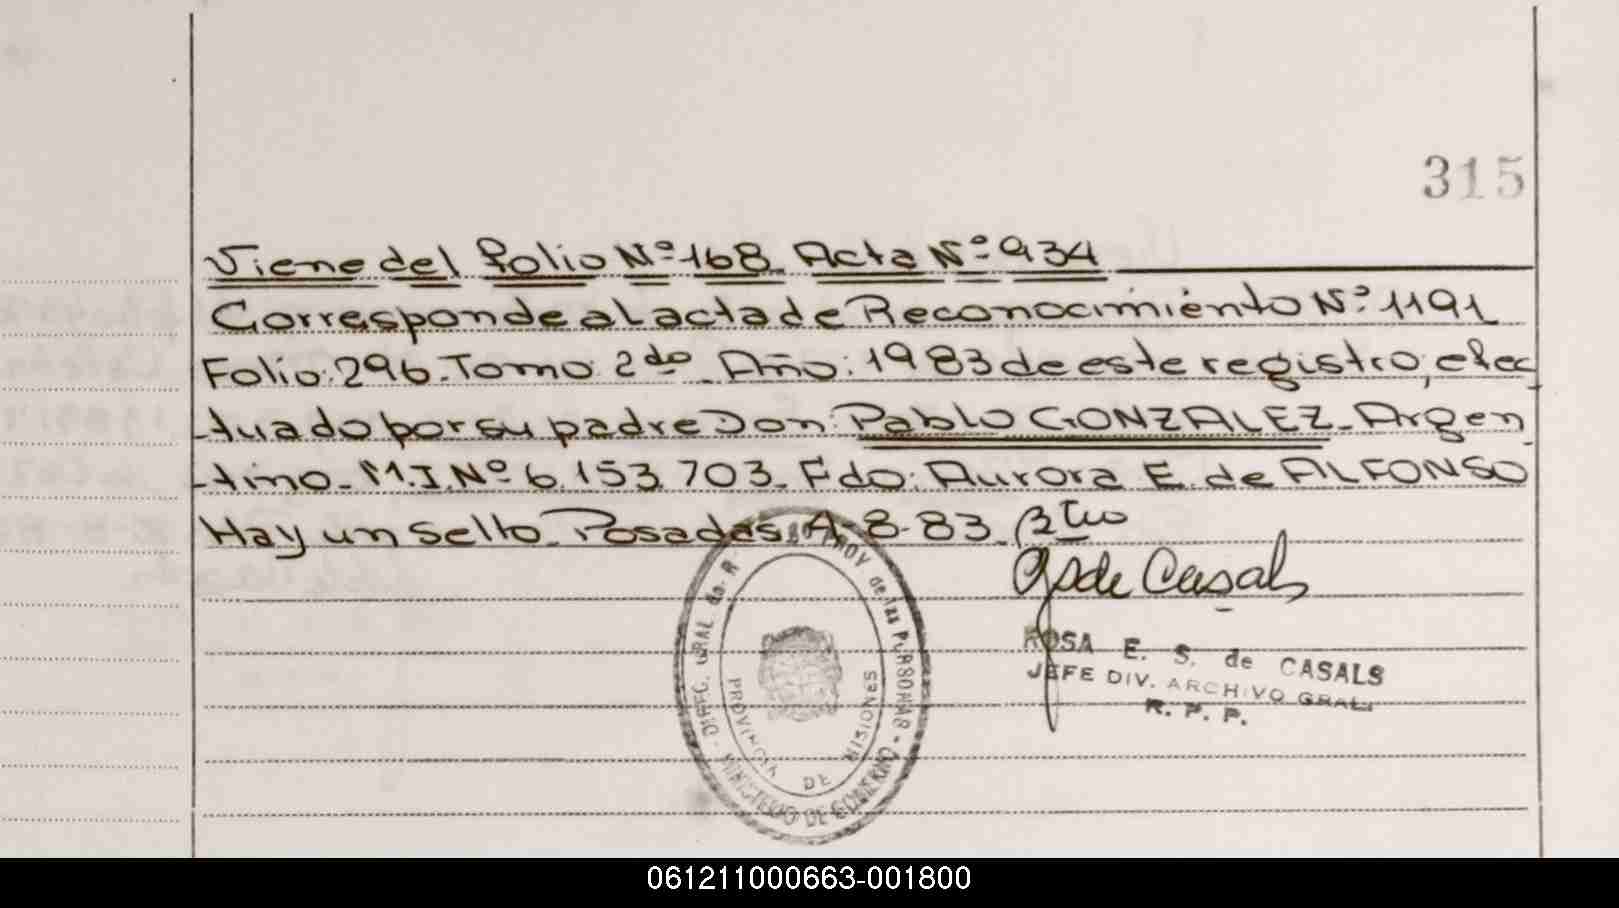 315
Viene del folio Nº 168. Acta Nº 934
Corresponde al acta de Reconocimiento Nº 1191
Folio: 296. Tomo: 2do. Año: 1983 de este registro, efec
tuado por su padre Don: Pablo GONZALEZ. Argen
tino. M.I.Nº 6.153.703. Fdo: Aurora E. de ALFONSO
Hay un sello. Posadas, 4-8-83.
de Casals
ROSA E. S. de CASALS
JEFE DIV. ARCHIVO GRAL.
R. P. P.
DIREC. GRAL de PROV de las PERSONAS - MINISTERIO DE GOBIERNO -
PROVINCIA DE MISIONES
061211000663-001800